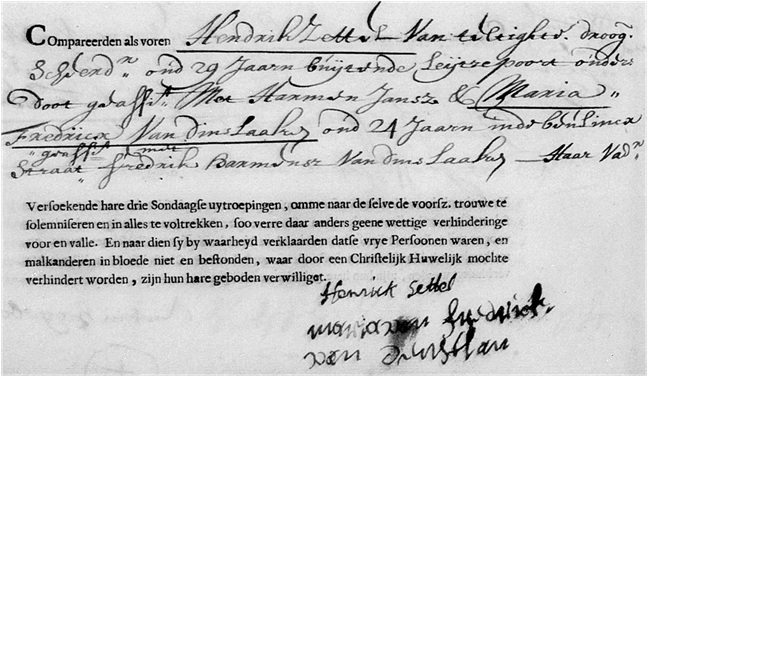 Compareerden als voren Hendrik Zettel Van droog.
Scheerdr. oud 29 Jaaren buijten de Leijtze poort ouders
Doot geassist. Met Harmen Jansz & Maria
Fredricx Van dinslaaken oud 24 Jaaren inde
geassist. met
Straat Fredrik Harmensz Van dinslaaken Haar Vadr.
Versoekende hare drie Sondaagse uytroepingen, omme naar de selve de voorsz. trouwe te
solemniseren en in alles te voltrekken, soo verre daar anders geene wettige verhinderinge
voor en valle. En naar dien sy by waarheyd verklaarden datse vrye Persoonen waren, en
malkanderen in bloede niet en bestonden, waar door een Christelijk Huwelijk mochte
verhindert worden, zijn hun hare geboden verwilligot.
Henrick Settel
maria van fredrick
van